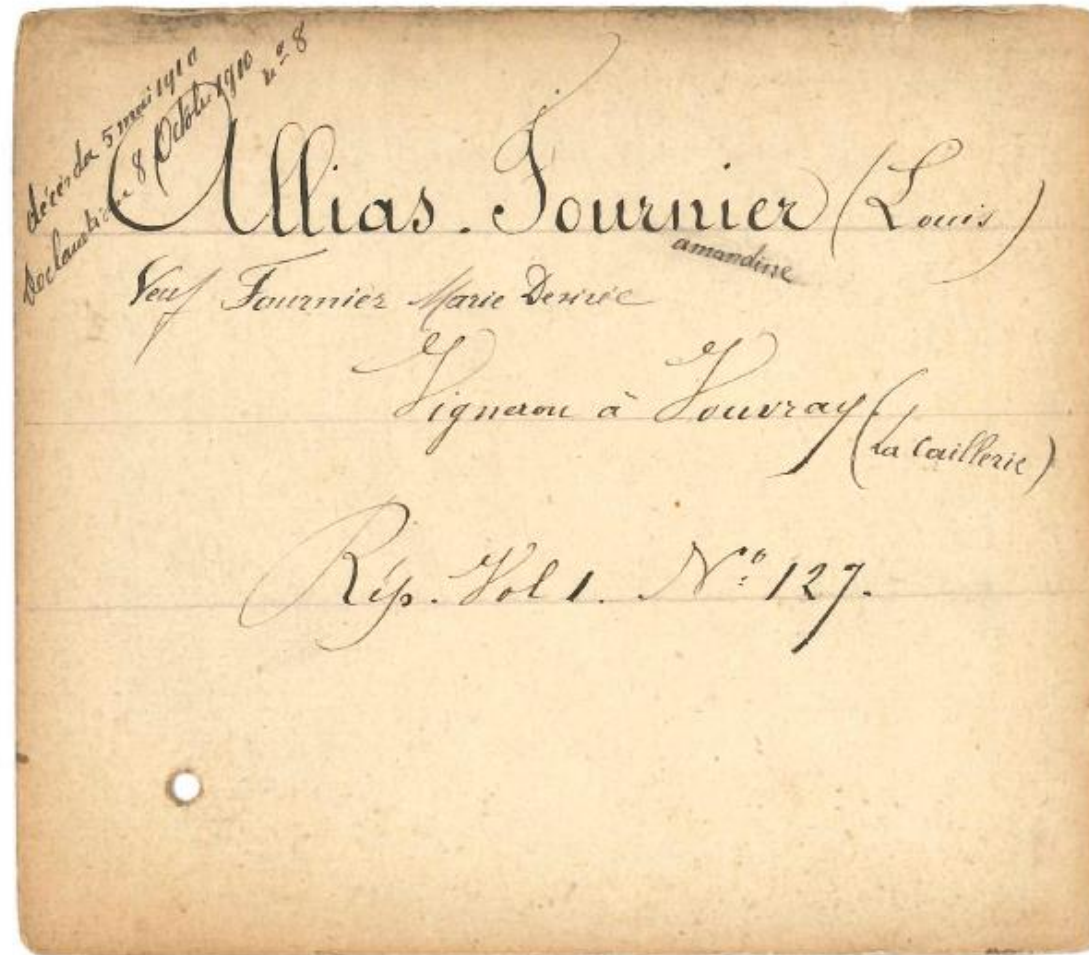 décès du 5 mai 1910
Declaration 8 Octobre 1910 nº 8
Allias. Fournier (Louis)
amandine
Veuf Fournier Marie Desirée
Vigneron à Vouvray
(La Caillerie)
Rép. Vol 1. Nº 127.